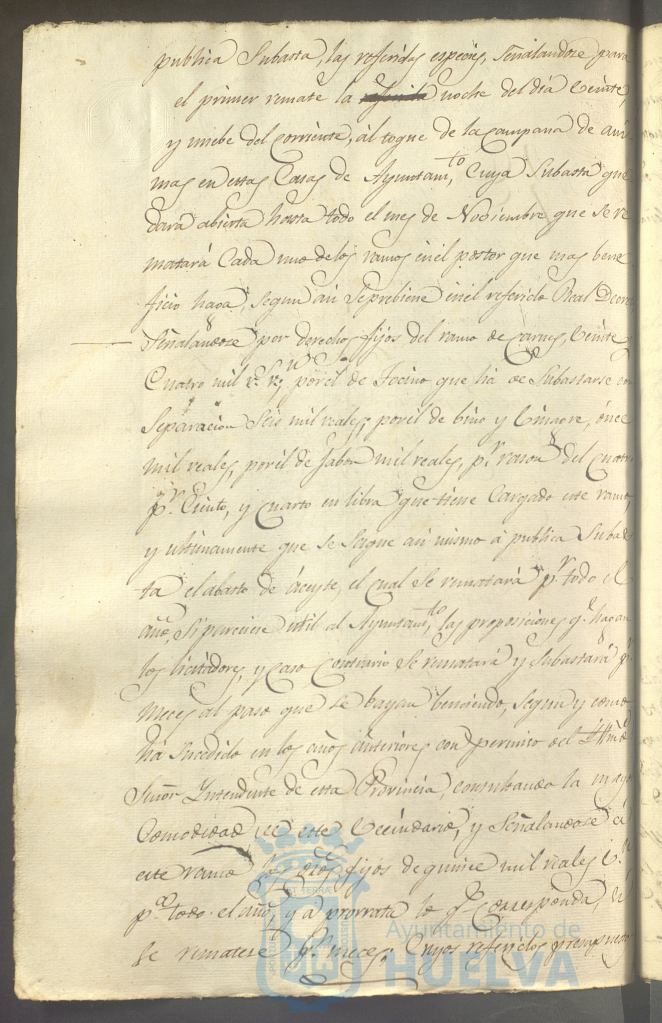 publica Subasta, las referidas especies, Señalandose para
el primer remate la noche del dia Veinte,
y nuebe del corriente, al toque de la Campana de ani
mas en estas Casas de Ayuntam.to, Cuya Subasta que
dará abierta hasta todo el mes de Noviembre que se re
matará Cada uno de los ramos en el postor que mas bene
ficio haga, segun asi se prebiene en el referido Real Decre
Señalandose por derechos fijos del ramo de Carnes, Veinte y
Cuatro mil por el de Tocino que ha de Subastarse con
Separacion Seis mil reales; por el de bino y Binagre, once
mil reales, por el de Jabon mil reales, p.r razon del Cuatro
p.r Ciento, y Cuarto en libra que tiene Cargado este ramo,
y ultimamente que se saque asi mismo á publica Subas
ta el abasto de áceyte, el cual se rematará p.r todo el
año, si pareciese util al Ayuntam.to, las proposiciones q.e hagan
los licitadores, y Caso Contrario se rematará y Subastará p.r
meces al paso que se bayan benciendo, segun y como
há Sucedido en los años ánteriores con permiso del
Señor Yntendente de esta Provincia, consultando la mayor
Comodidad de este Vecindario, y Señalandose á
este ramo los dros fijos de quince mil reales
p.r todo el año, y a prorrata lo q.e Corresponda, si
se rematase p.r meces. Cuyos referidos
Ayuntamiento de
HUELVA